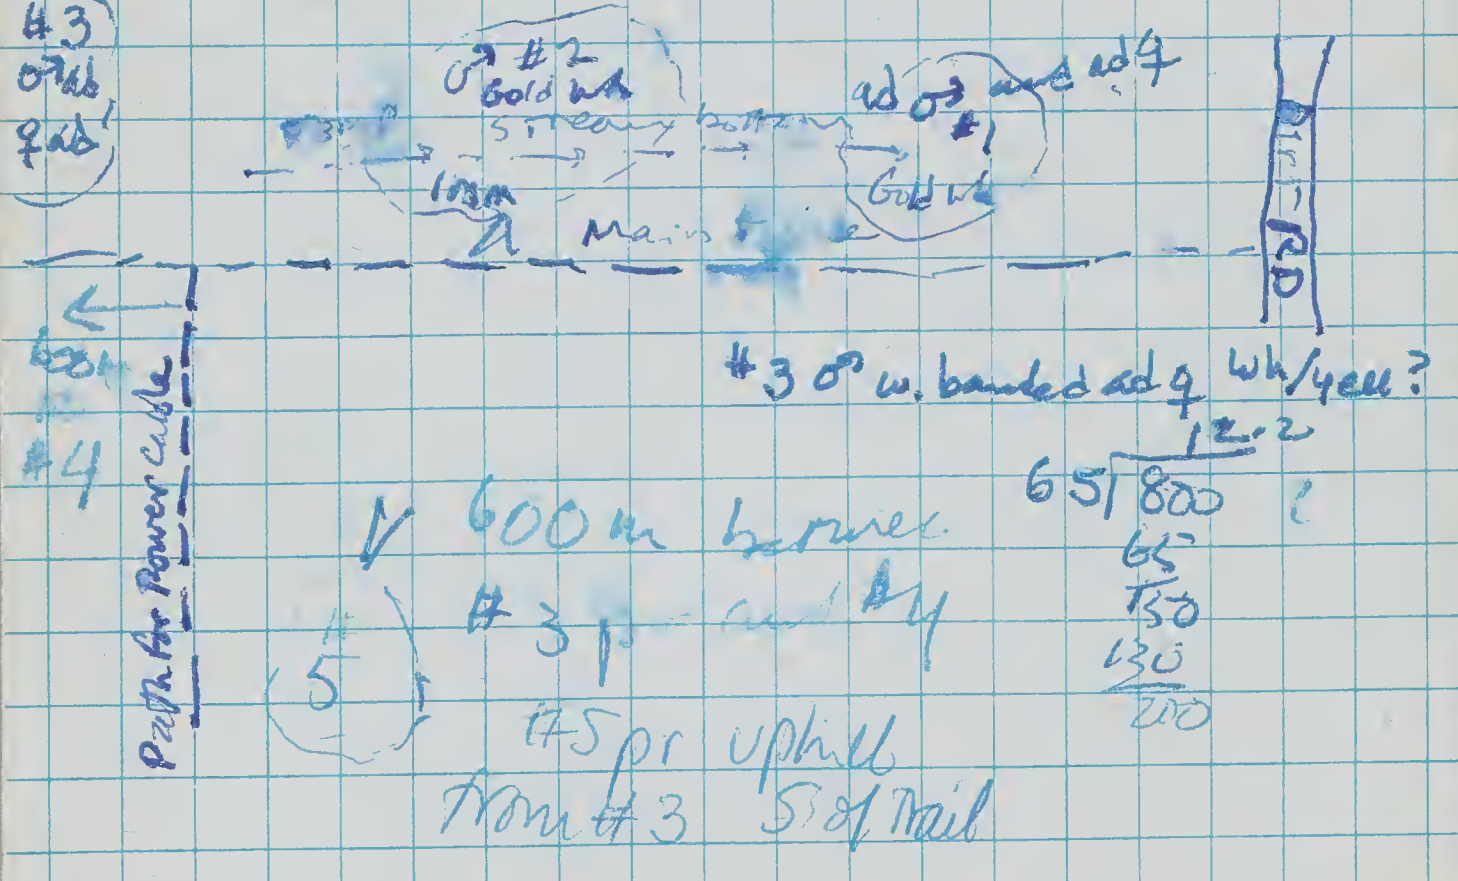 #3
♂ ad
♀ ad
♂ #2
Gold Wh
stream bottom
ad ♂ and ad ♀
#1
Gold Wh
Main
Dirt RD
600m
#4
Path for Power Cable
#3 ♂ w. banded ad ♀ Wh/yell?
12.2
65)800
65
150
130
200
600 m between
#3 pr and #4
#
5
#5 pr uphill
from #3 S of Trail